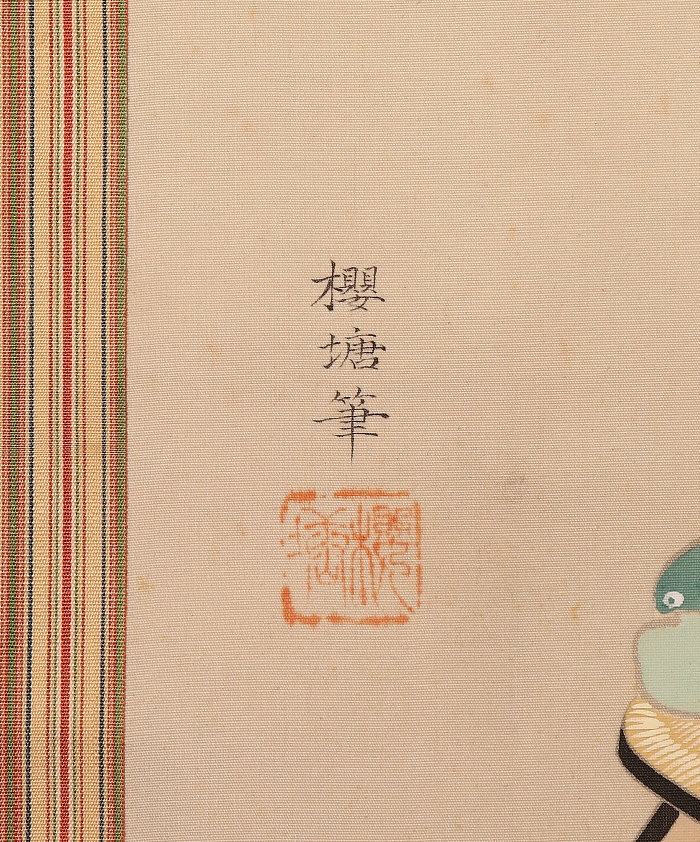 櫻塘筆
櫻塘